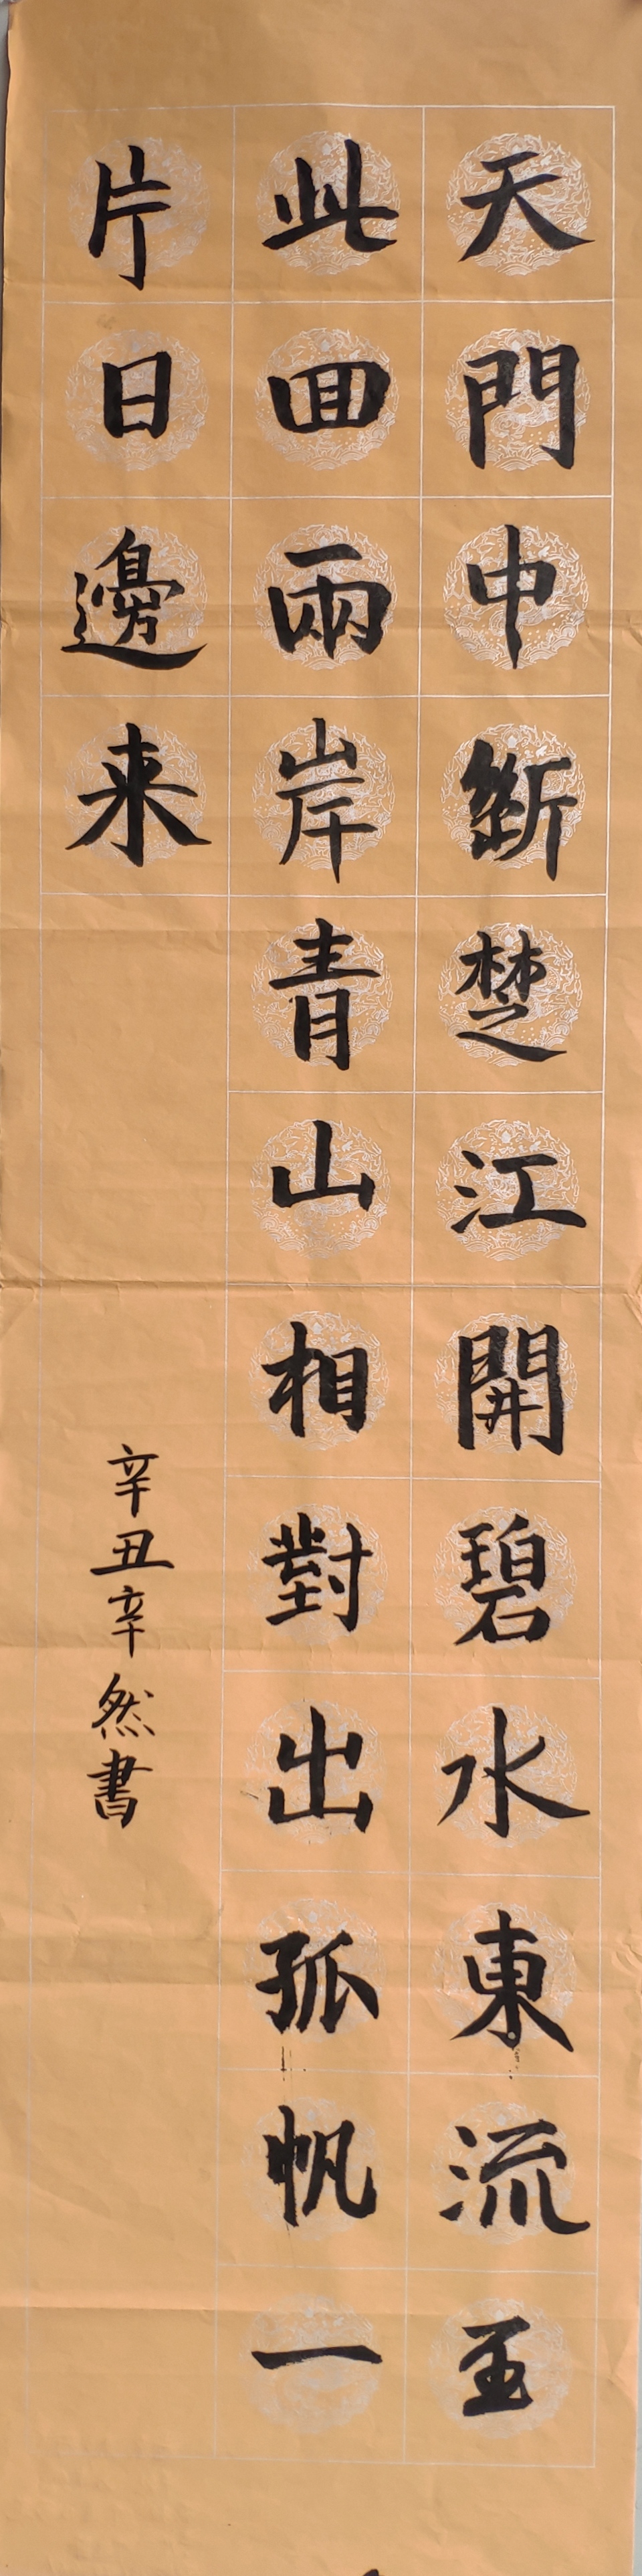 天門中斷楚江開碧水東流至
此回兩岸青山相對出孤帆一
片日邊来
辛丑辛然書